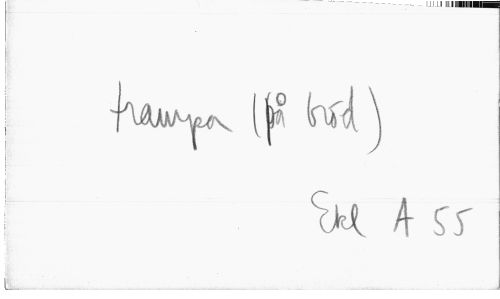 trampa (på bröd)
Ekl A 55